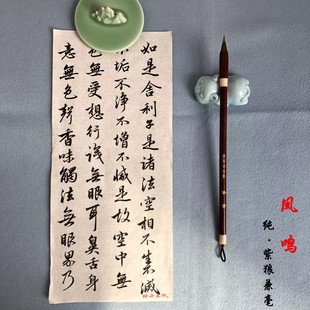 如是舍利子是諸法空相不生滅
不垢不淨不增不減是故空中無
色無受想行識無眼耳鼻舌身
意無色聲香味觸法無眼界乃
凤鸣
纯·紫狼兼毫